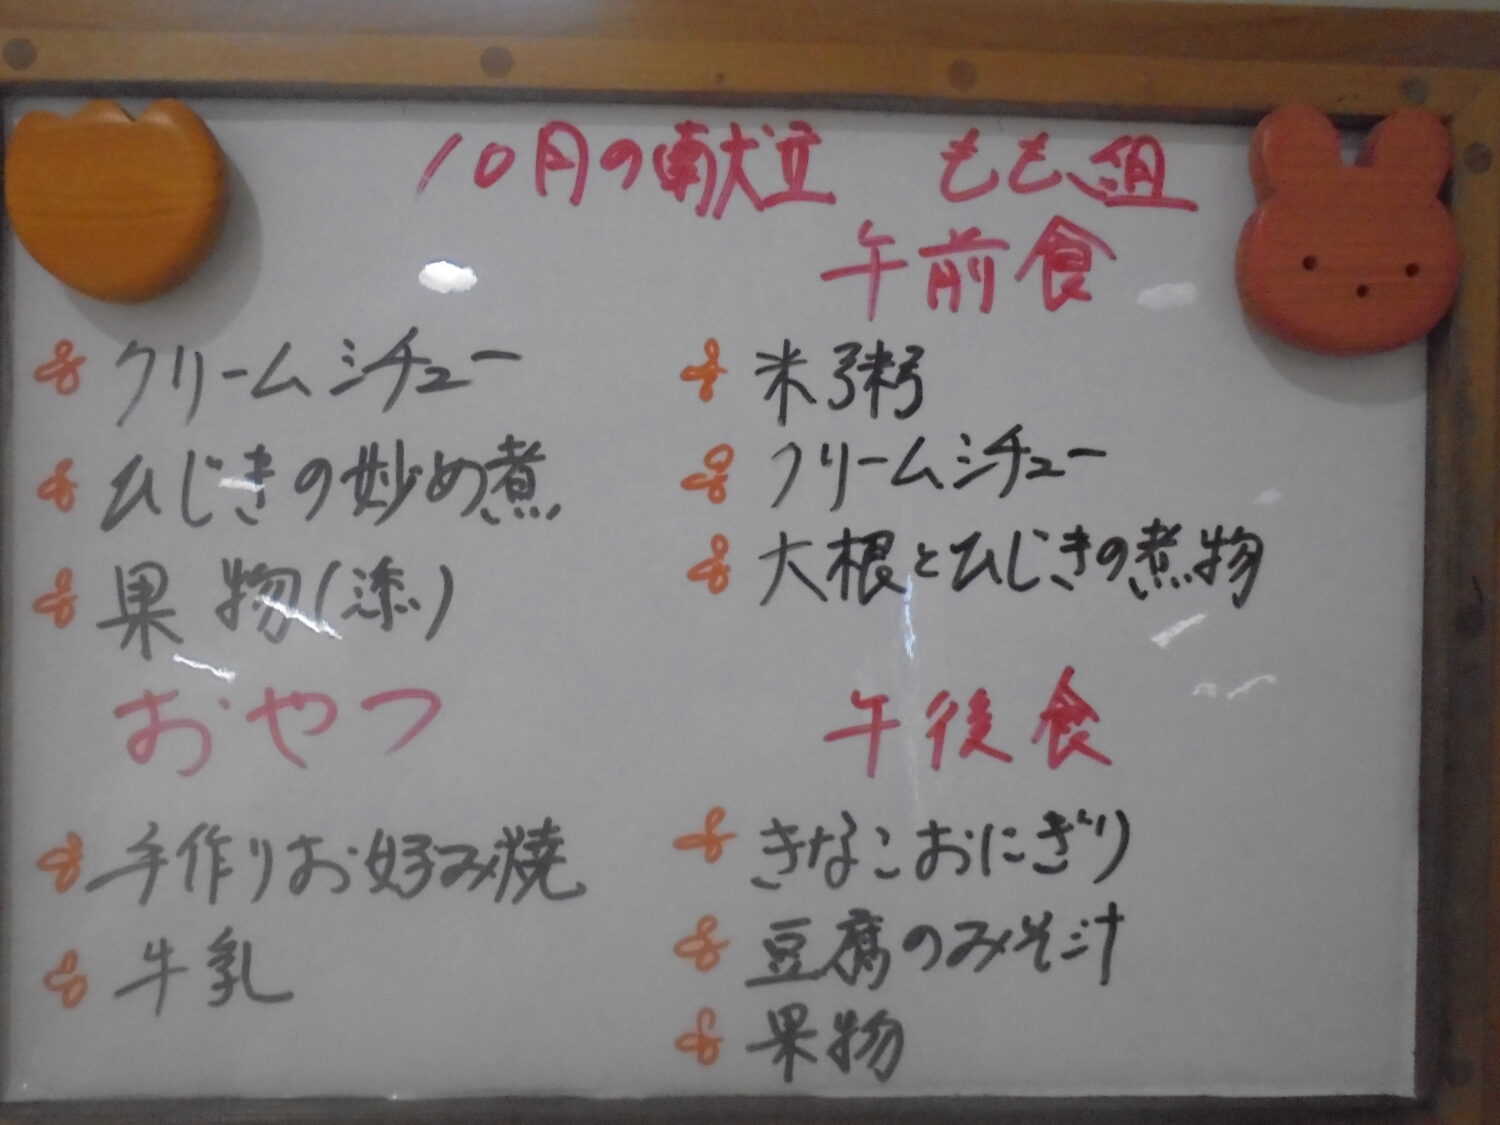 10月の献立 もも組
クリームシチュー
ひじきの炒め煮
果物(添)
おやつ
手作りお好み焼
牛乳
午前食
米粥
クリームシチュー
大根とひじきの煮物
午後食
きなこおにぎり
豆腐のみそ汁
果物